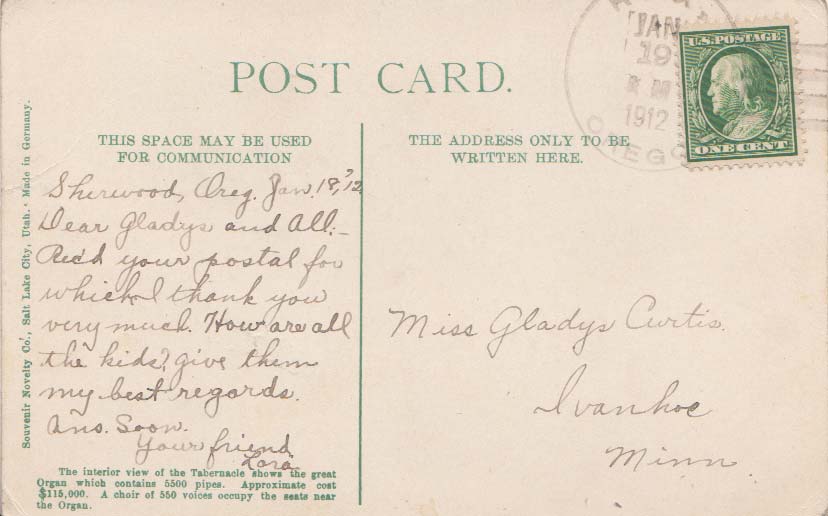 POST CARD.
THIS SPACE MAY BE USED
FOR COMMUNICATION
THE ADDRESS ONLY TO BE
WRITTEN HERE.
JAN
19
1912
OREGO
U.S. POSTAGE
ONE CENT
Souvenir Novelty Co., Salt Lake City, Utah. Made in Germany.
Sherwood, Oreg. Jan. 18, '12.
Dear Gladys and All:–
Rec'd your postal for
which I thank you
very much. How are all
the kids? give them
my best regards.
Ans. Soon.
Your friend
Lora
Miss Gladys Curtis.
Ivanhoe
Minn.
The interior view of the Tabernacle shows the great
Organ which contains 5500 pipes. Approximate cost
$115,000. A choir of 550 voices occupy the seats near
the Organ.